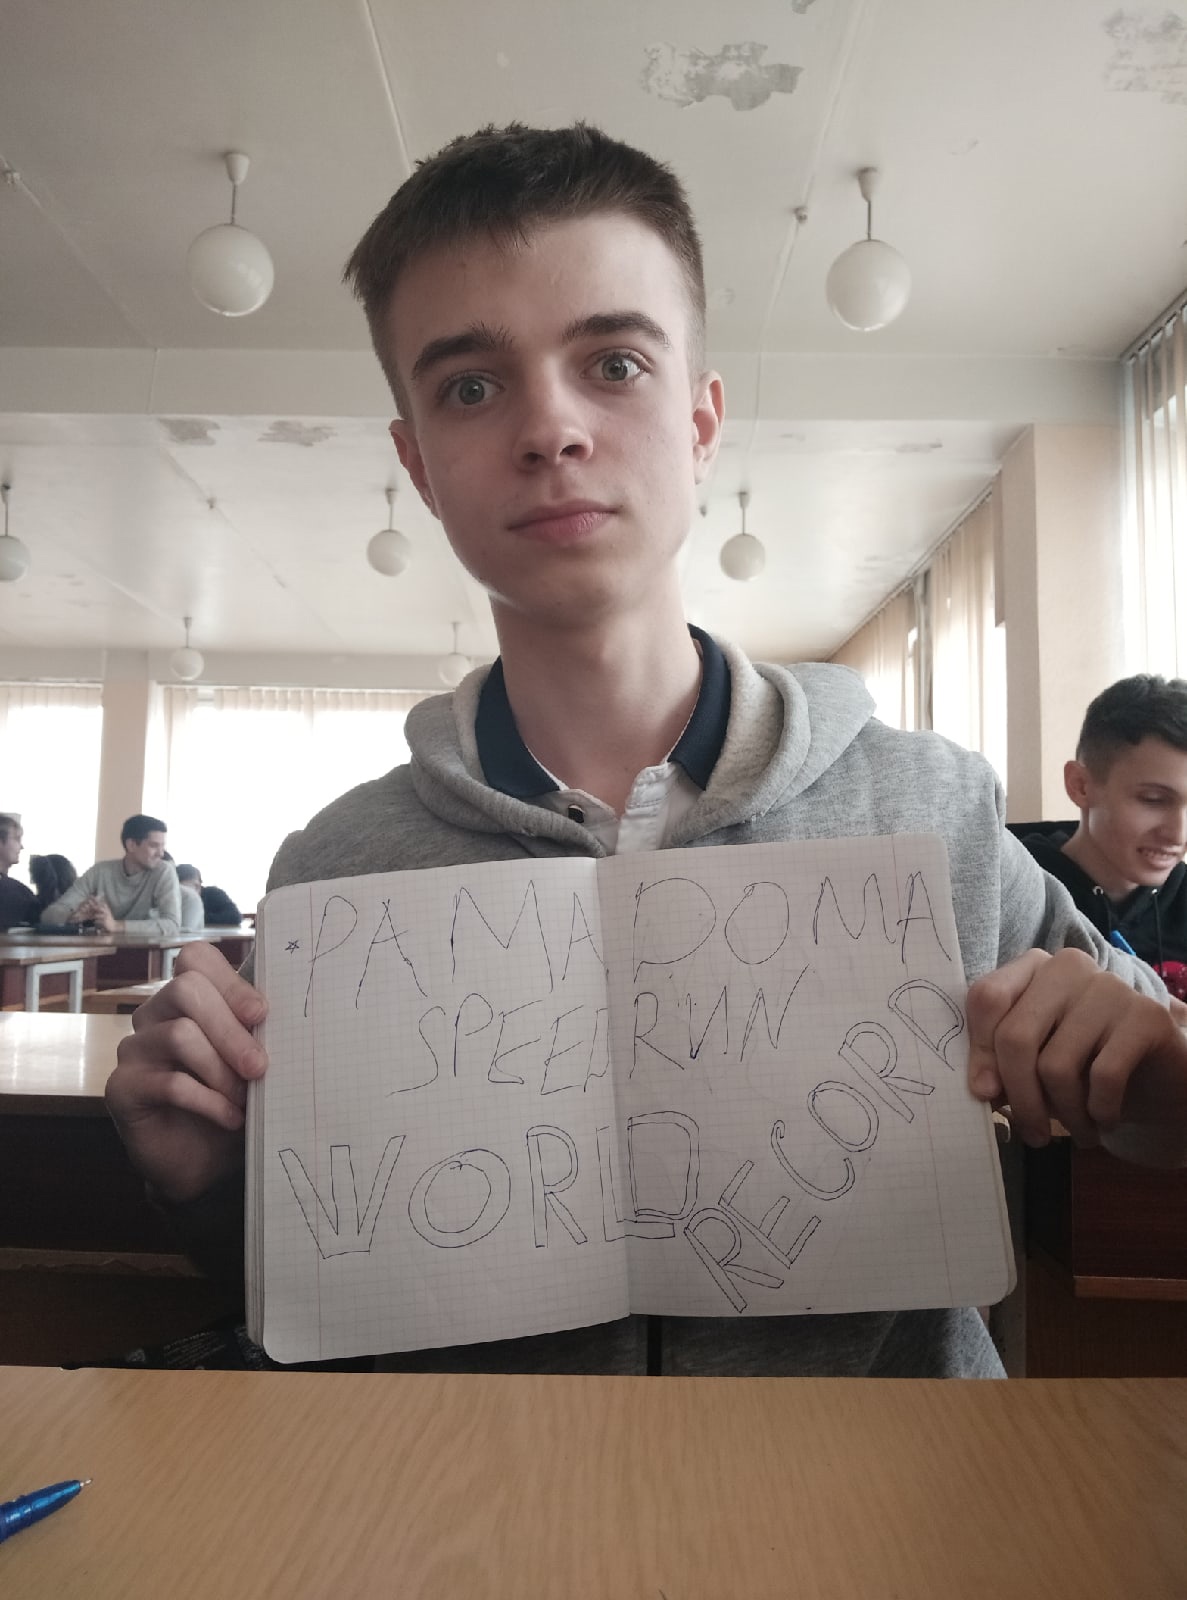 *PAMA DOMA
SPEEDRUN
WORLD
RECORD